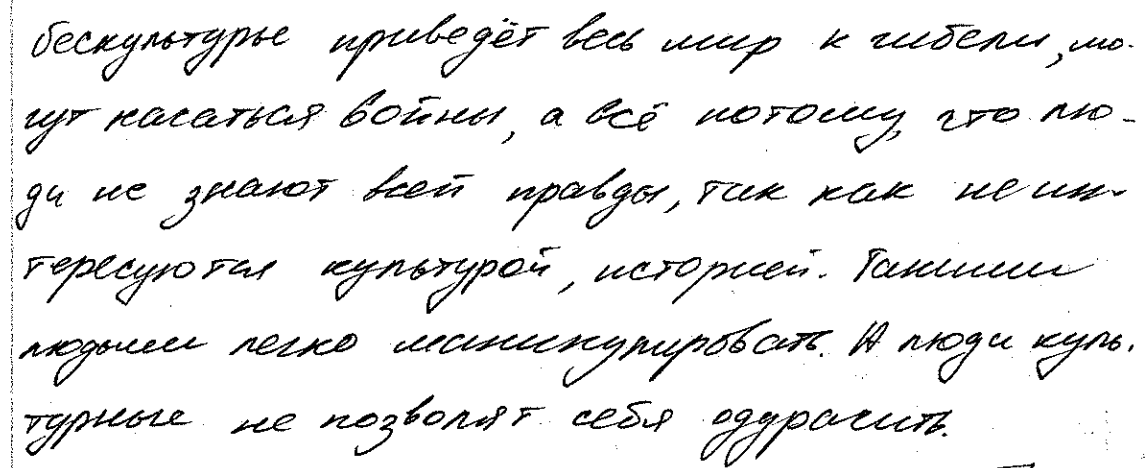 бескультурье приведёт весь мир к гибели, мо-
гут касаться войны, а всё потому, что лю-
ди не знают всей правды, так как не ин-
тересуются культурой, историей. Такими
людьми легко манипулировать. А люди куль-
турные не позволят себя одурачить.